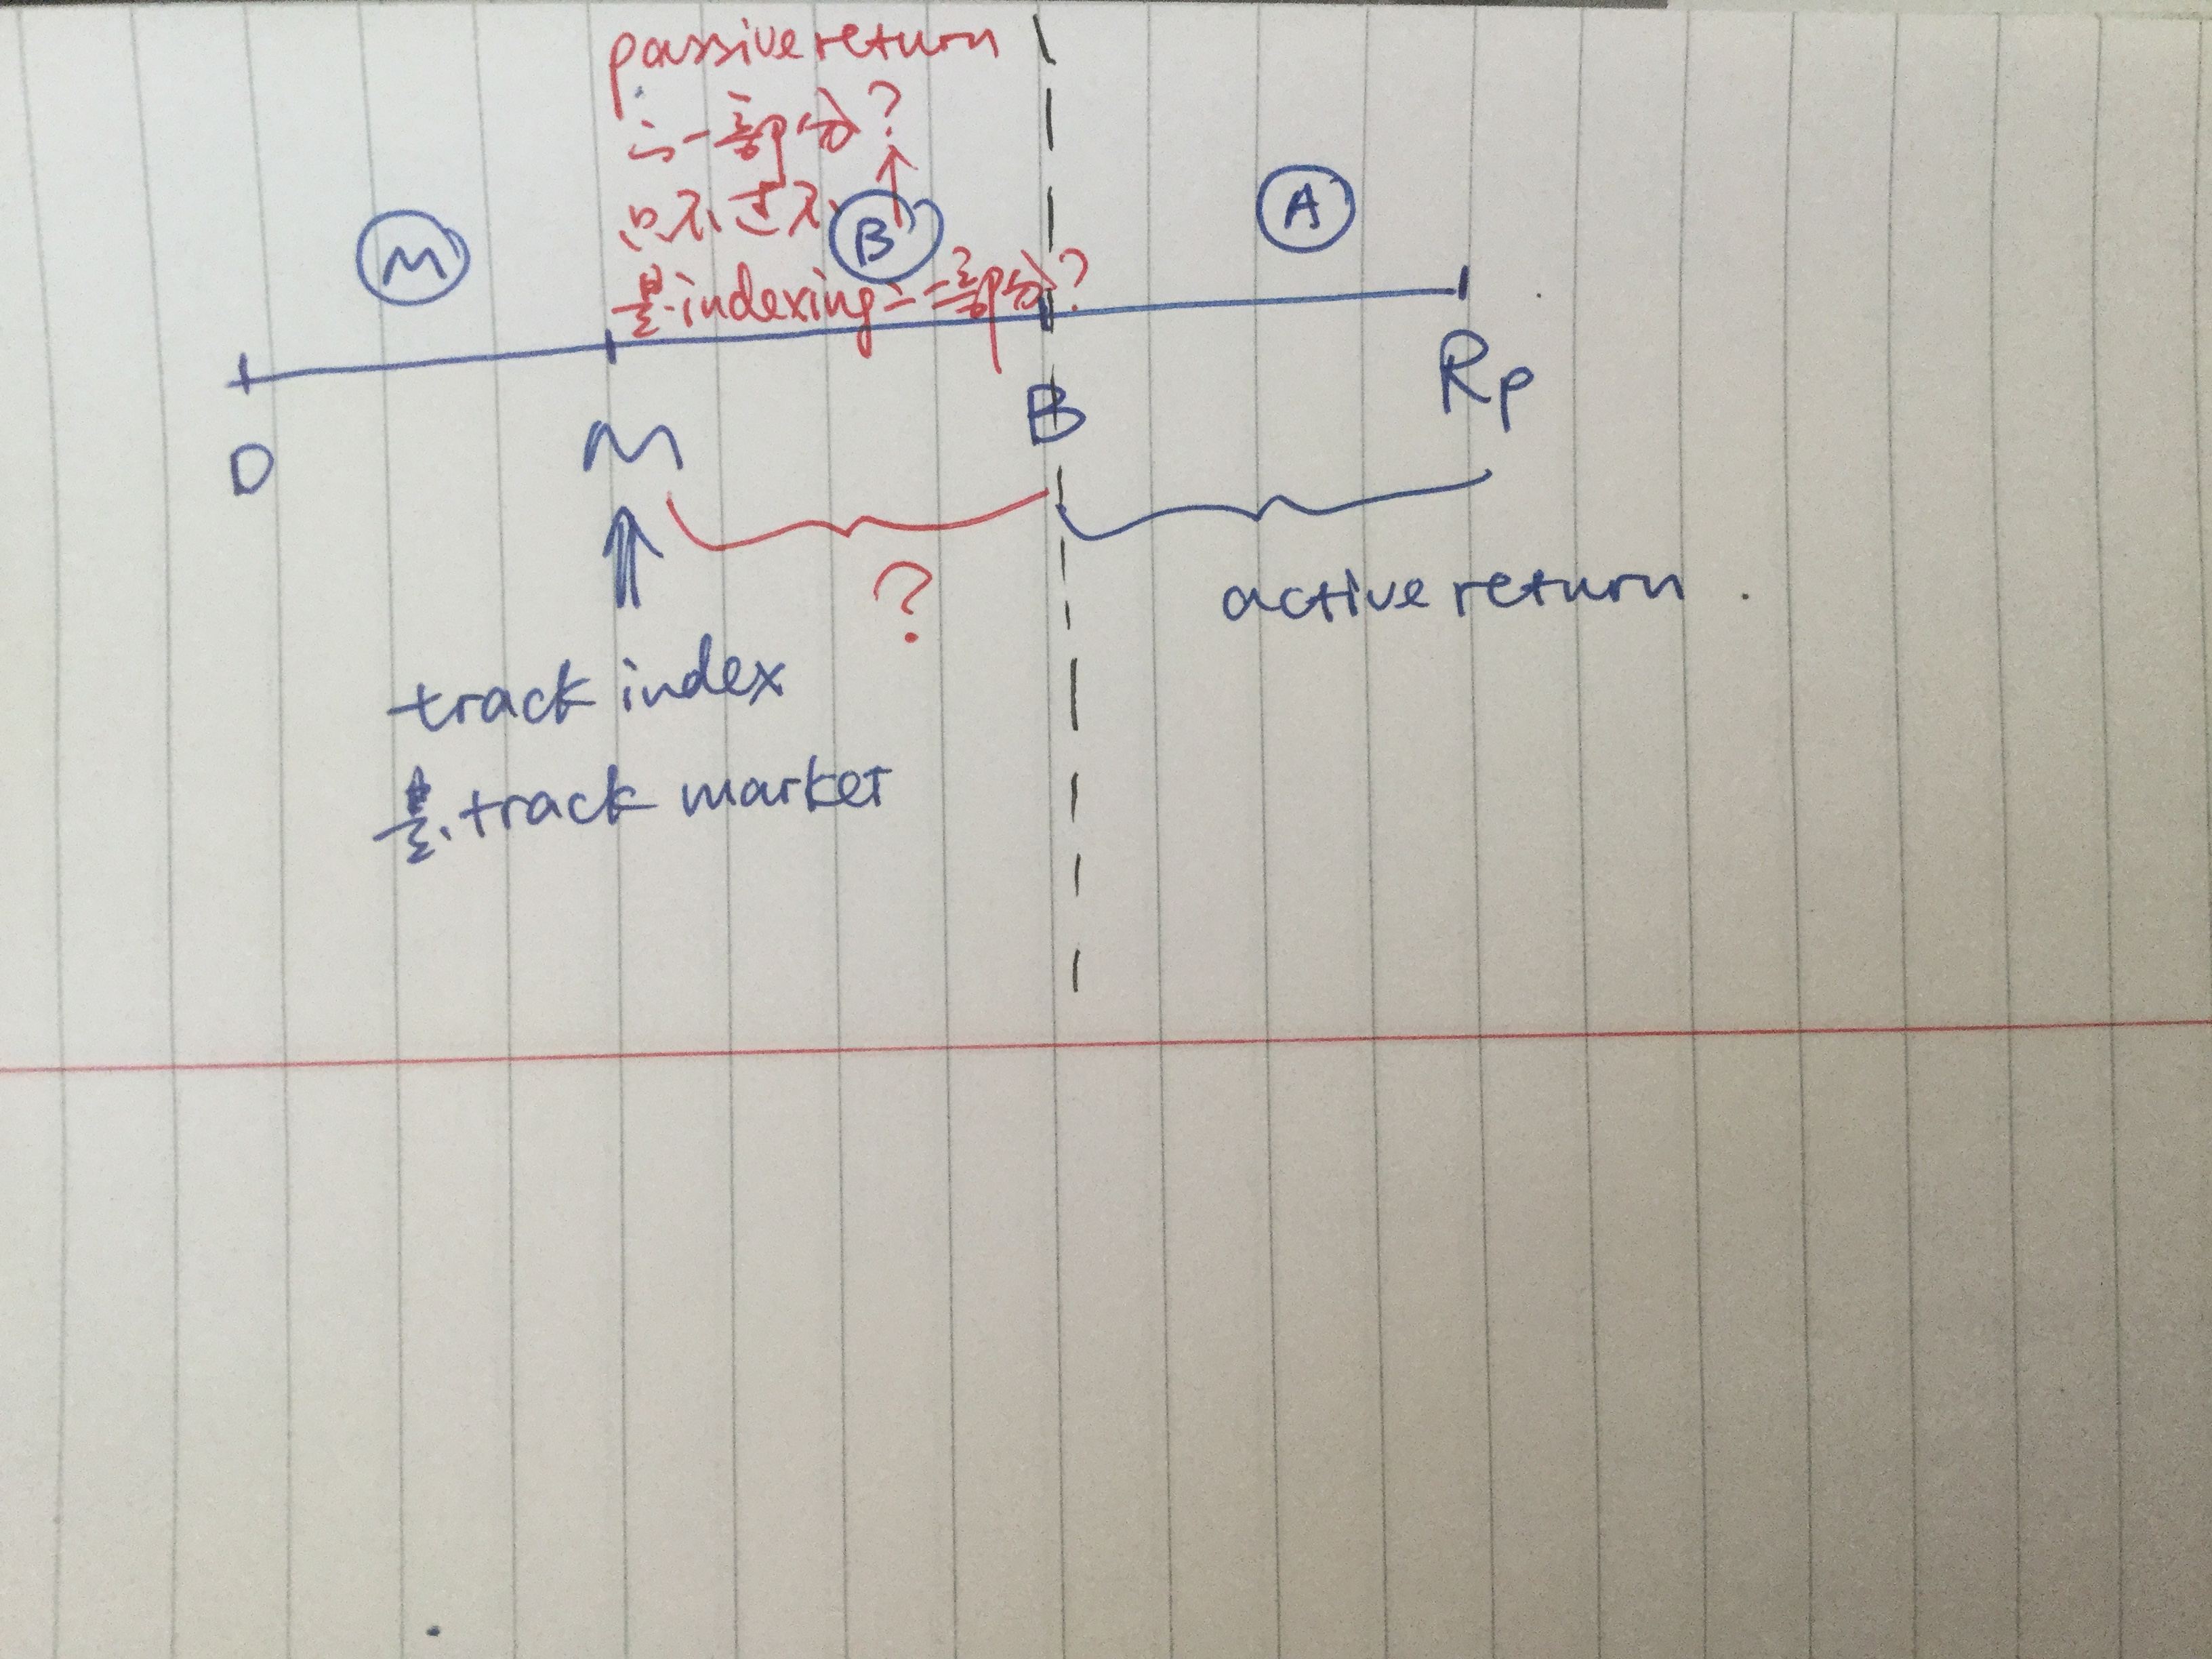 passive return
一部分?
只不过不
是indexing 一部分?
M
B
A
O
M
B
Rp
?
active return.
track index
是track market